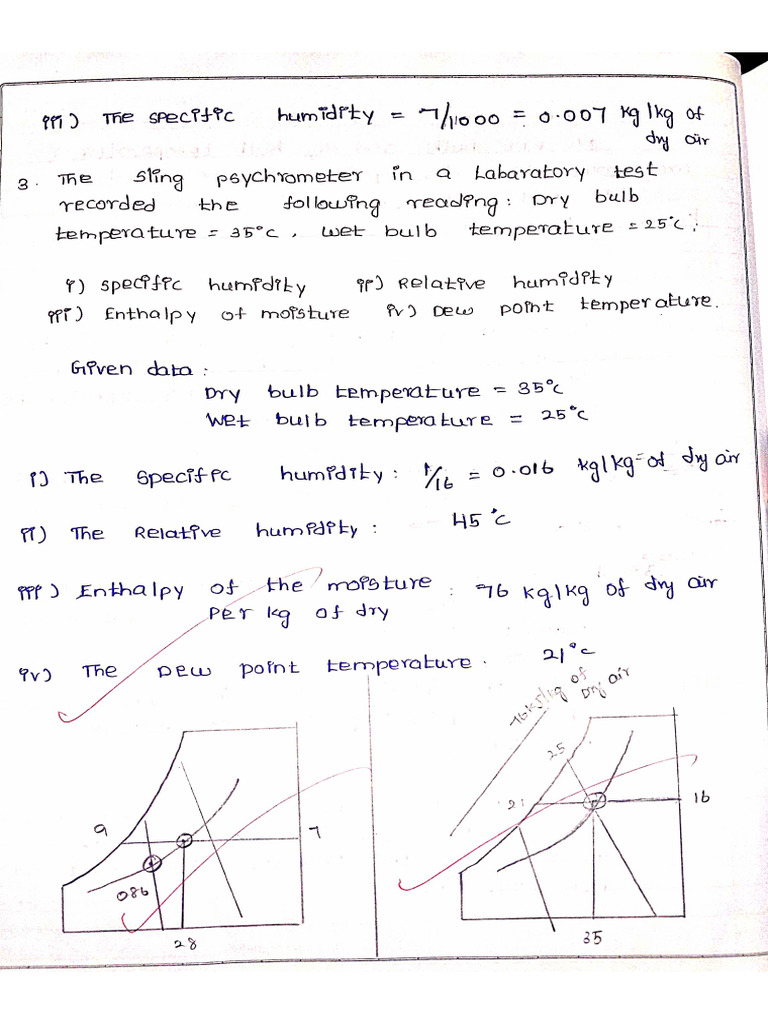 iii) The specific humidity = 7/1000 = 0.007 kg/kg of
dry air
3. The sling psychrometer in a Labaratory test
recorded the following reading: Dry bulb
temperature = 35°c, wet bulb temperature = 25°c.
i) specific humidity ii) Relative humidity
iii) Enthalpy of moisture iv) Dew point temperature.
Given data:
Dry bulb temperature = 35°c
Wet bulb temperature = 25°c
i) The specific humidity: 1/16 = 0.016 kg/kg of dry air
ii) The Relative humidity: 45°c
iii) Enthalpy of the moisture : 76 kg/kg of dry air
Per kg of dry
iv) The Dew point temperature. 21°c
76 kJ/kg of
Dry air
25
21
16
35
9
7
086
28